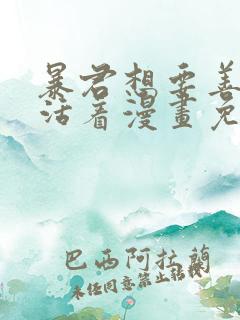 暴君想要善
活着漫畫免
巴西阿拉蘭
未经同意禁止转载